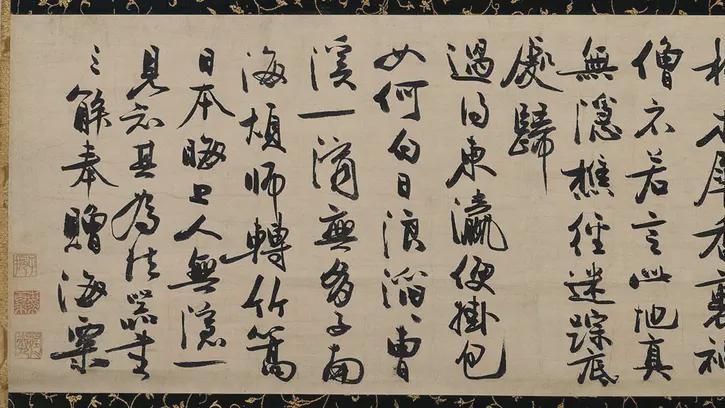 犀香裏
僧不若言此地真
無隱樵徑迷踪底
處歸
過得東瀛便掛包
如何白日浪滔〻曹
溪一滴無多子南
海煩師轉竹篙
日本晦上人無隱一
見知其為法器書
三解奉贈海粟